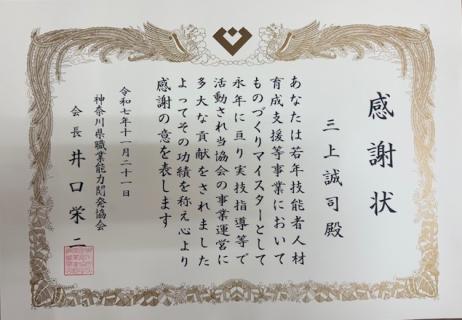 感謝状
三上誠司殿
あなたは若年技能者人材
育成支援等事業において
ものづくりマイスターとして
永年に亘り実技指導等で
活動され当協会の事業運営に
多大な貢献をされました
よってその功績を称え心より
感謝の意を表します
令和七年十一月二十一日
神奈川県職業能力開発協会
会長 井口栄二